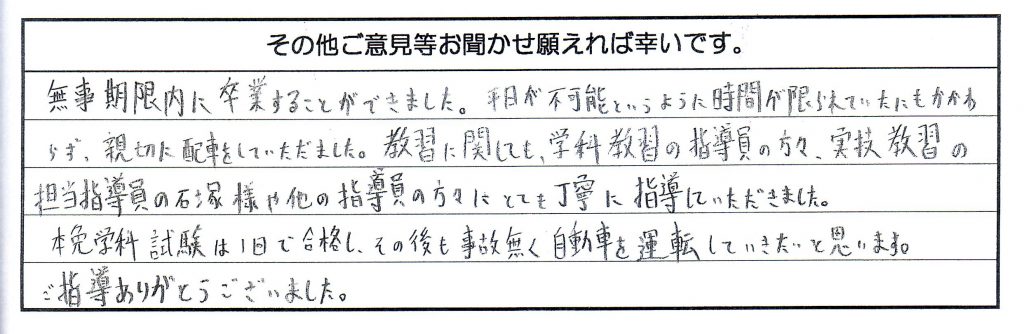 その他ご意見等お聞かせ願えれば幸いです。
無事期限内に卒業することができました。平日が不可能というように時間が限られていたにもかかわ
らず、親切に配車をしていただました。教習に関しても、学科教習の指導員の方々、実技教習の
担当指導員の石塚様や他の指導員の方々にとても丁寧に指導していただきました。
本免学科試験は1回で合格し、その後も事故無く自動車を運転していきたいと思います。
ご指導ありがとうございました。